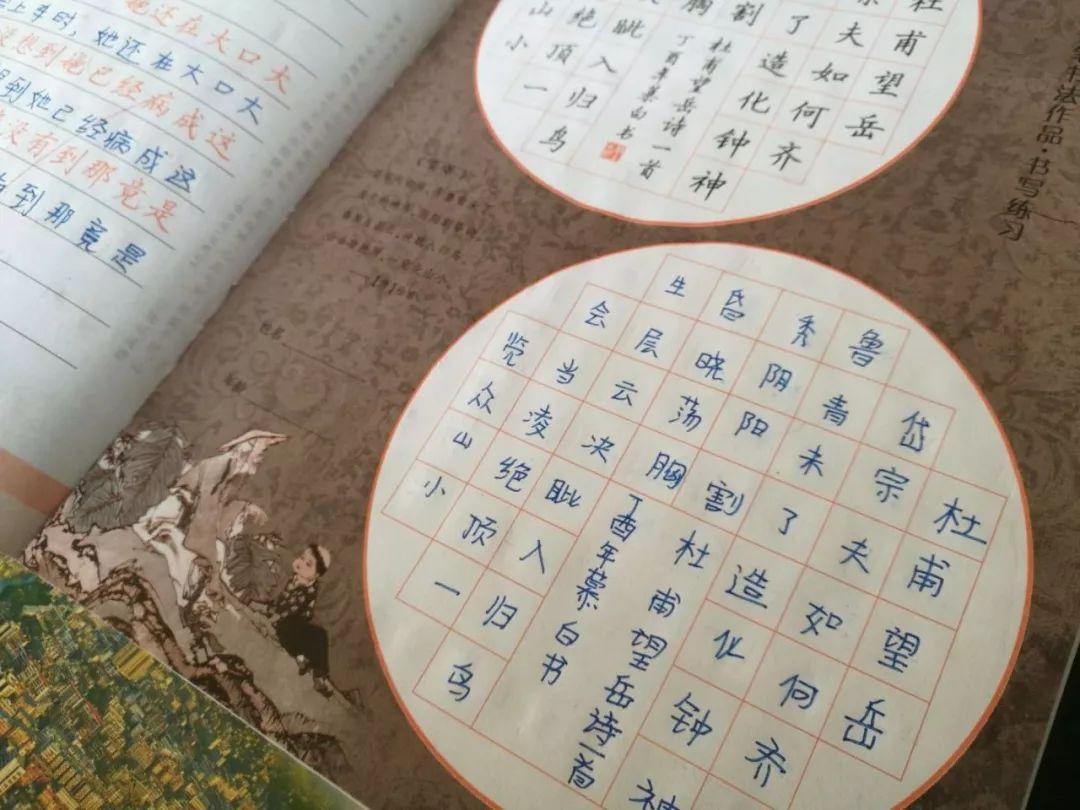 她还在大口大
上车时,她还在大口大
想到她已经病成这
想到她已经病成这
没有到那竟是
到那竟是
书法作品·书写练习
杜甫望岳
夫如何齐
了造化钟神
割
杜甫望岳诗一首
胸
丁酉年慕白书
眦入归鸟
绝顶一
山小
杜甫望岳
岱宗夫如何齐
鲁青未了造化钟神
秀阴阳割
杜甫望岳诗一首
昏晓荡胸
丁酉年慕白书
生层云决眦入归鸟
会当凌绝顶一
览众山小